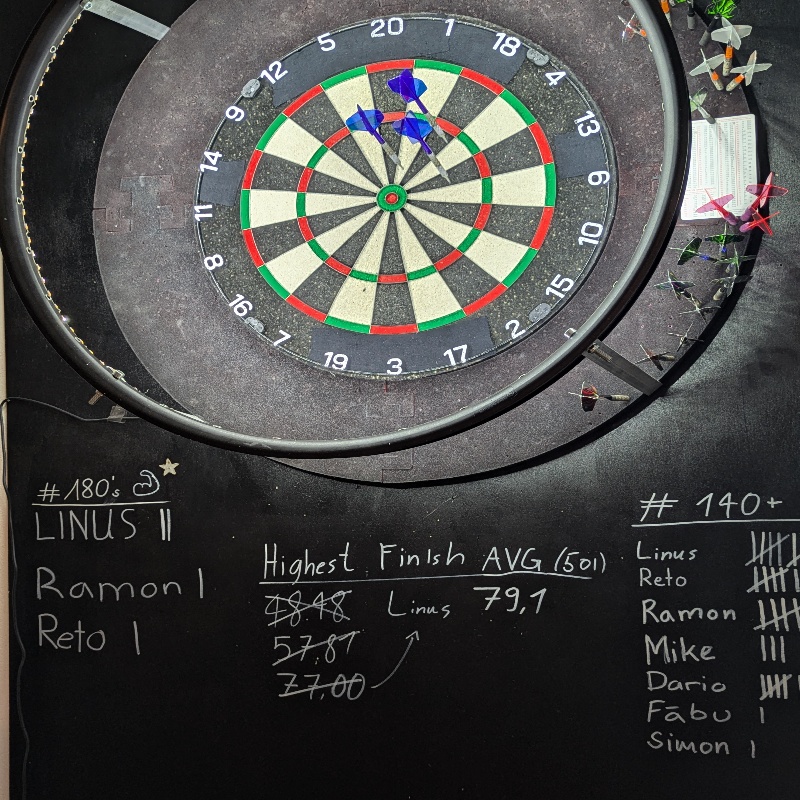 20
1
18
4
13
6
10
15
2
17
3
19
7
16
8
11
14
9
12
5
# 180's
LINUS II
Ramon I
Reto I
Highest Finish AVG (501)
48.48 Linus 79,1
57,81
77,00
# 140+
Linus
Reto
Ramon
Mike III
Dario
Fābu I
Simon I